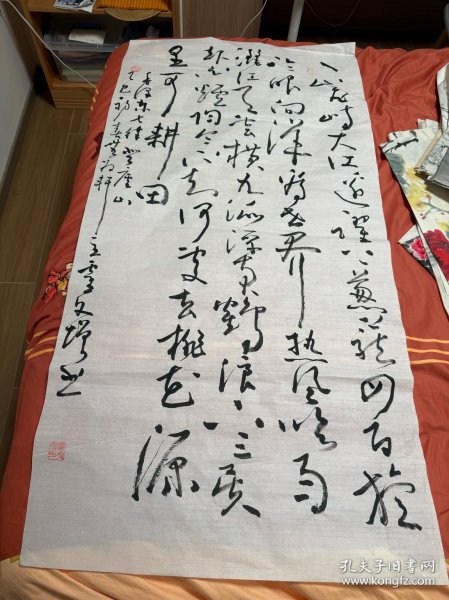 一山飞峙大江边跃上葱茏四百旋
冷眼向洋看世界热风吹雨
洒江天云横九派浮黄鹤浪下三吴
起白烟陶令不知何处去桃花源
里可耕田
毛泽东七律登庐山
乙巳初春轩主文增书
孔夫子旧书网
www.kongfz.com